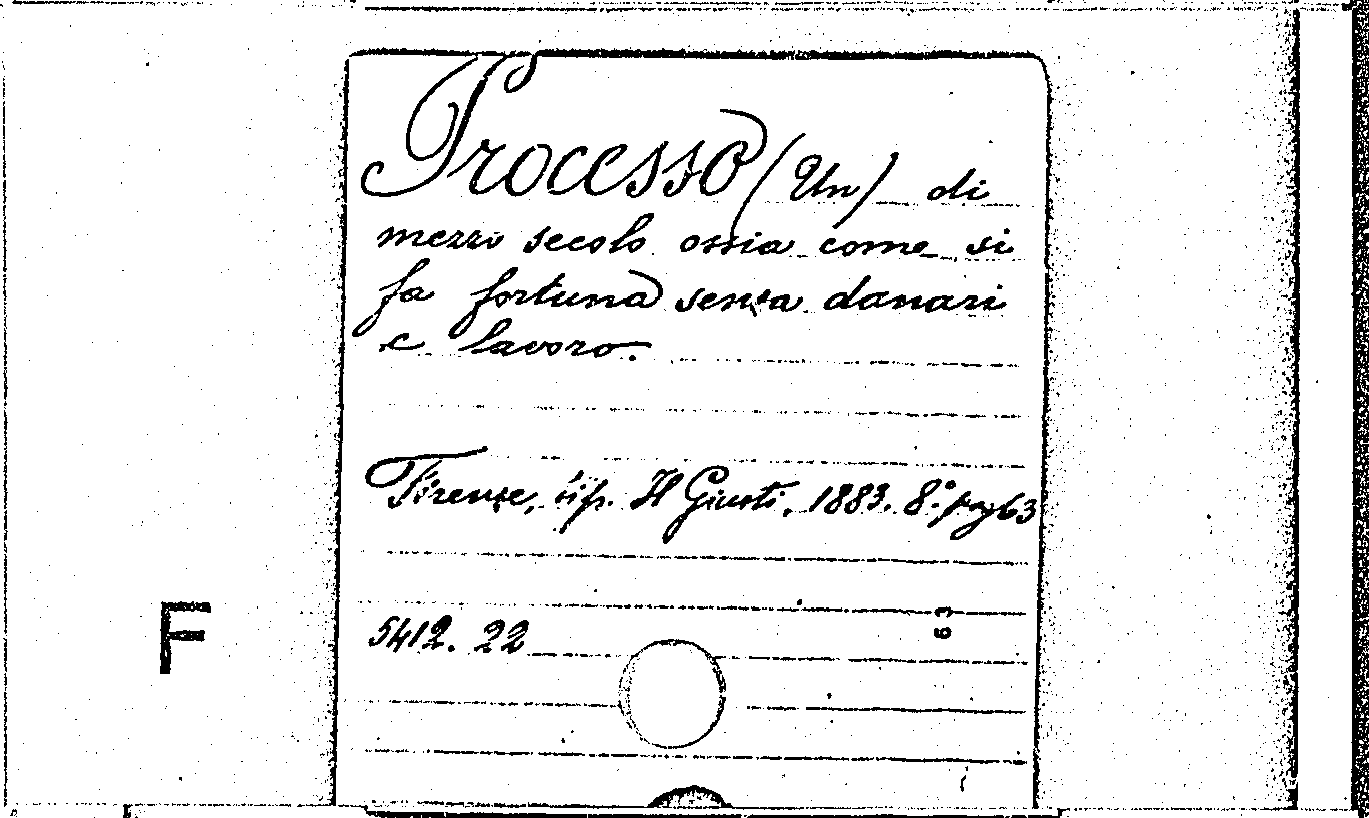 Processo (Un) di
mezzo secolo ossia come si
fa fortuna senza danari
e lavoro.
Firenze, tip. H Giusti, 1883. 8.° pag 63
63
F
5412. 22